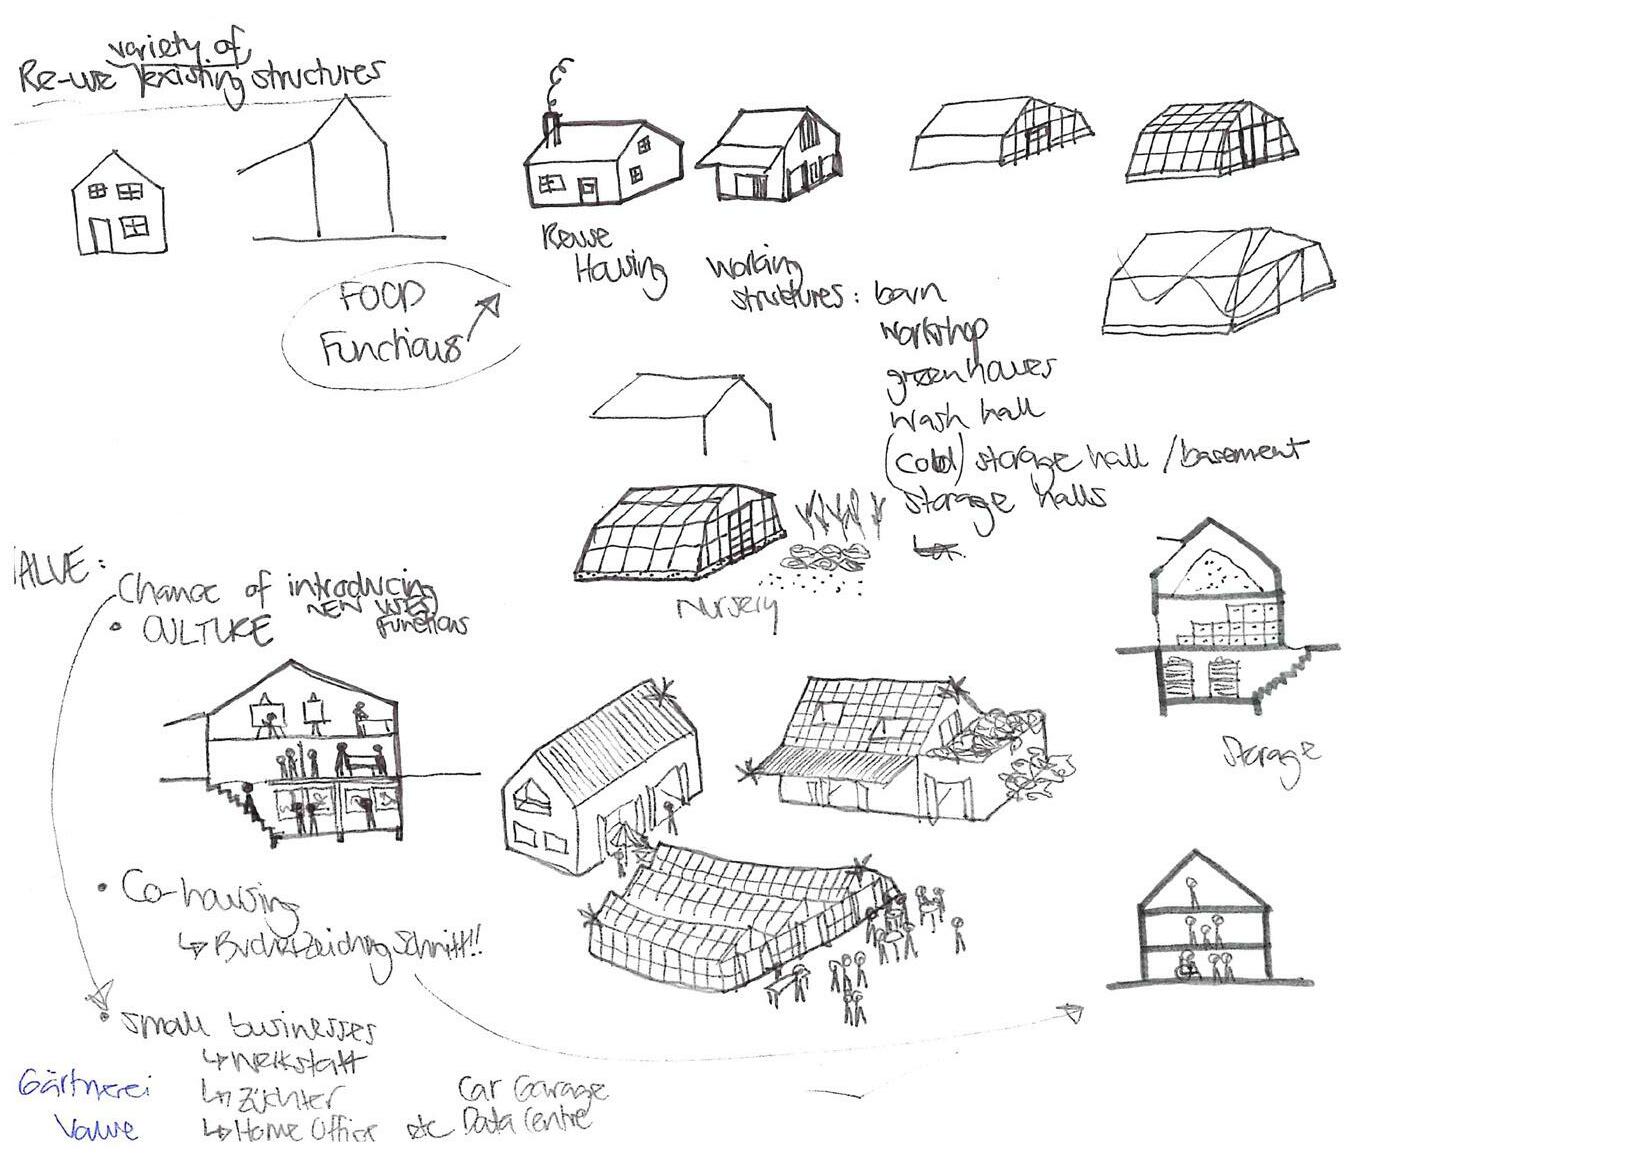 variety of
Re-use existing structures
Reuse
Housing
working
structures: barn
workshop
greenhouses
wash hall
(cold) storage hall / basement
storage halls
FOOD
Functions
Nursery
VALUE:
Chance of introducing
NEW
functions
• CULTURE
Storage
• Co-housing
↳ Schnitt!!
• small businesses
↳ Werkstatt
↳ Züchter
↳ Home Office etc
Car Garage
Data Centre
Gärtnerei
Value